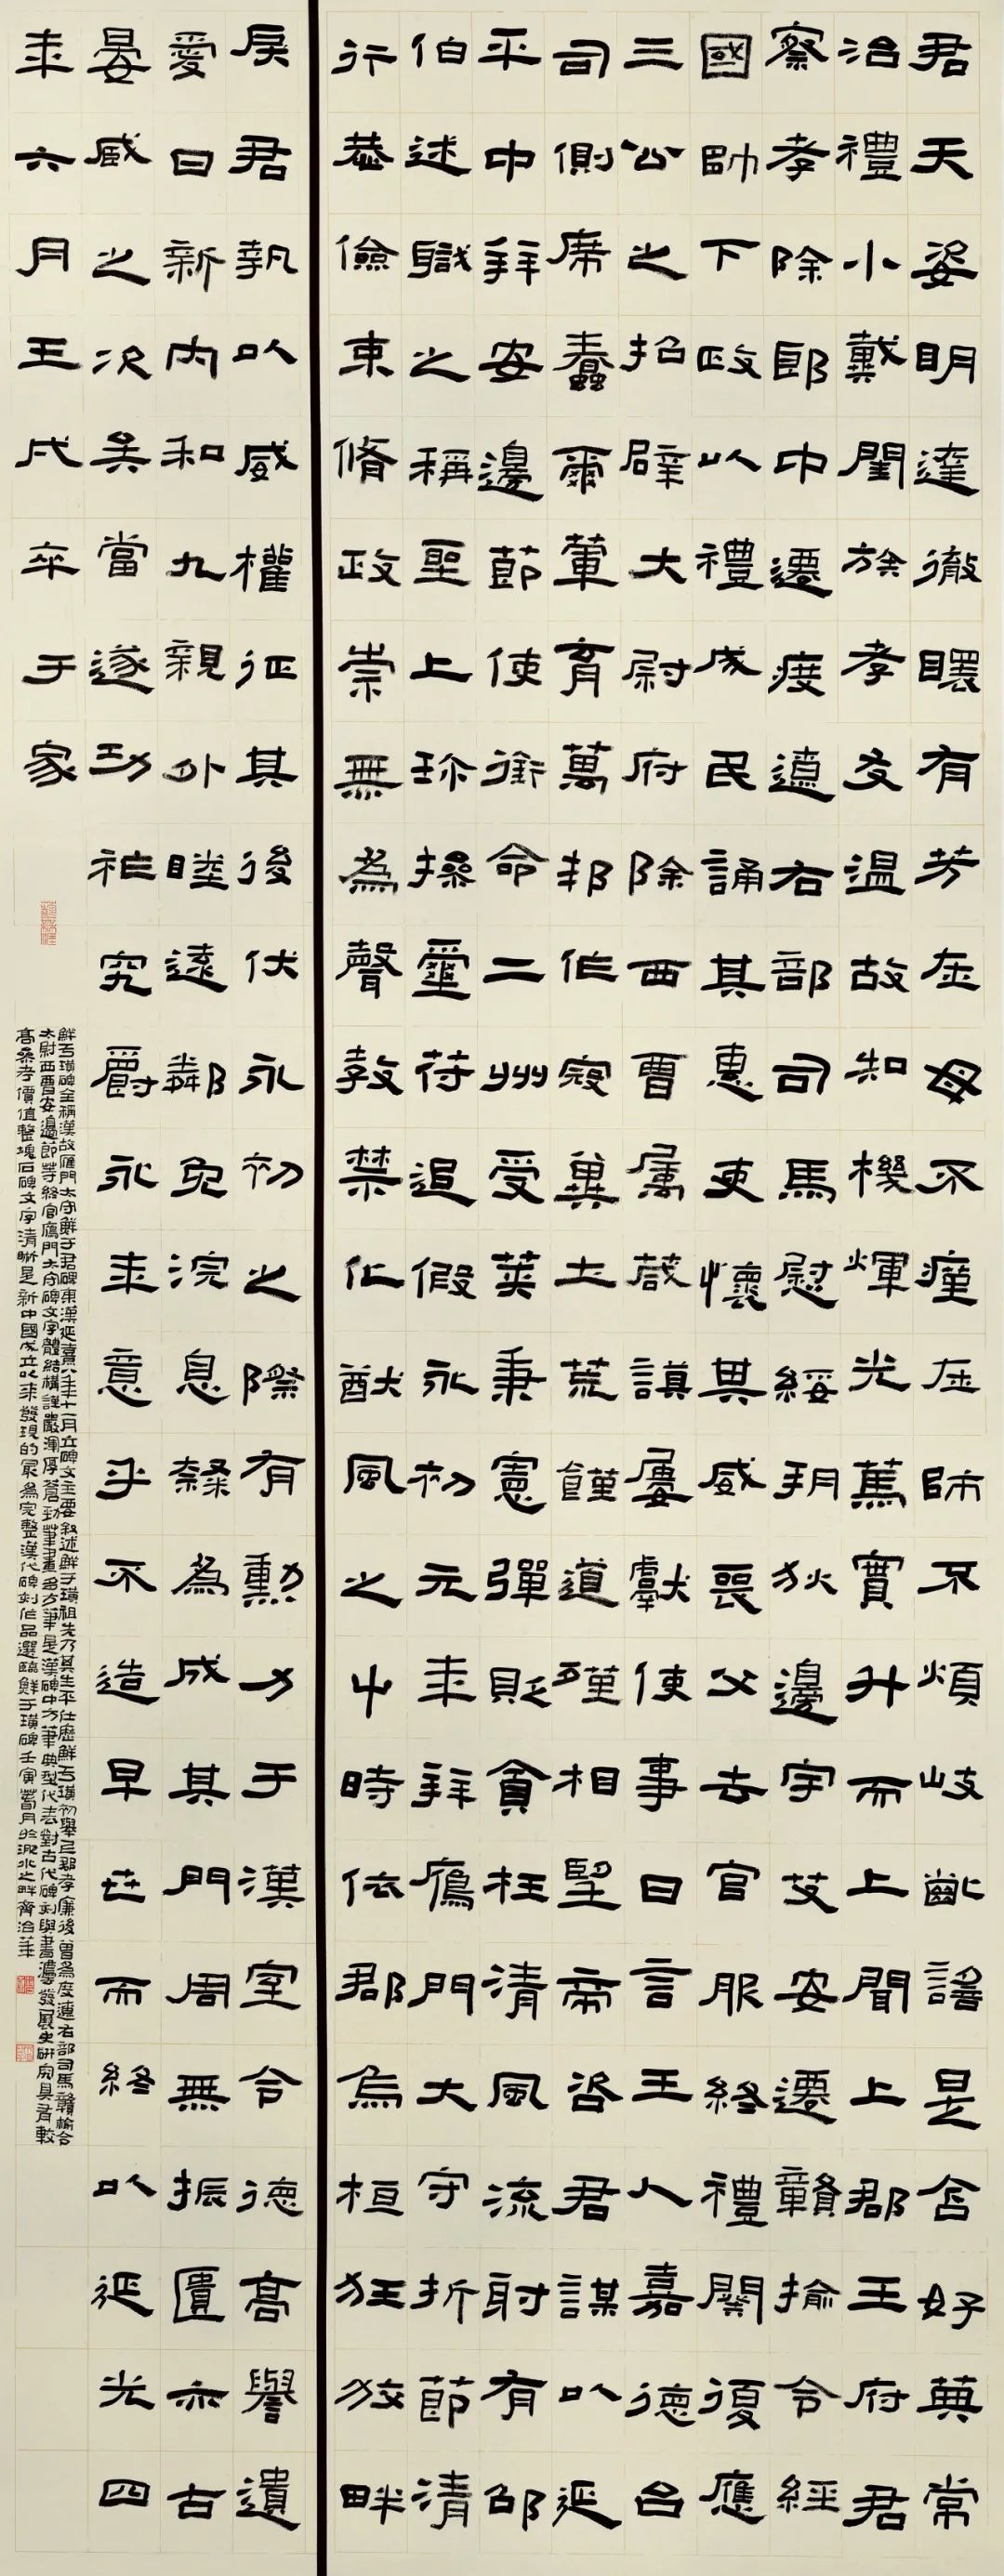 君天姿明達徹有芳在母不瘇在師不煩岐齔謠是含好典常
治禮小戴閨族孝友溫故知機煇光篤實升而上聞上郡王府君
察孝除郎中遷度遼右部司馬慰綏朔狄邊宇艾安遷贛揄令經
國帥下政以禮成民誦其惠吏懷其威喪父去官服終禮闋復應
三公之招辟大尉府除西曹屬葴謨屢獻使事日言王人嘉德台
司側席蠢爾葷育萬邦作寇冀土荒饉道殣相望帝咨君謀以延
平中拜安邊節使銜命二州受莢秉憲彈貶貪枉清風流射有邵
伯述職之稱聖上珎操璽符追假永初元年拜鴈門大守折節清
行恭儉束脩政崇無為聲教禁化猷風之中時依郡烏桓狂狡畔
戾君執以威權征其後伏永初之際有勳力于漢室令德高譽遺
愛日新內和九親外睦遠鄰免浣息隸為成其門周無振匱亦古
晏臧之次矣當遂功祚究爵永年意乎不造早世而終以延光四
年六月壬戌卒于家
鮮于璜碑全稱漢故雁門太守鮮于君碑東漢延熹八年十一月立碑文主要叙述鮮于璜祖先乃其生平仕歷鮮于璜初舉上郡孝廉後曾為度遼右部司馬贛榆令
太尉西曹安邊節等終官鴈門太守碑文字體結構謹嚴渾厚蒼勁筆畫多方筆是漢碑中方筆典型代表對古代碑刻與書灋發展史研究具有較
高參考價值整塊石碑文字清晰是新中國成立以來發現的最為完整漢代碑刻作品選臨鮮于璜碑壬寅月於淝水之畔齊治